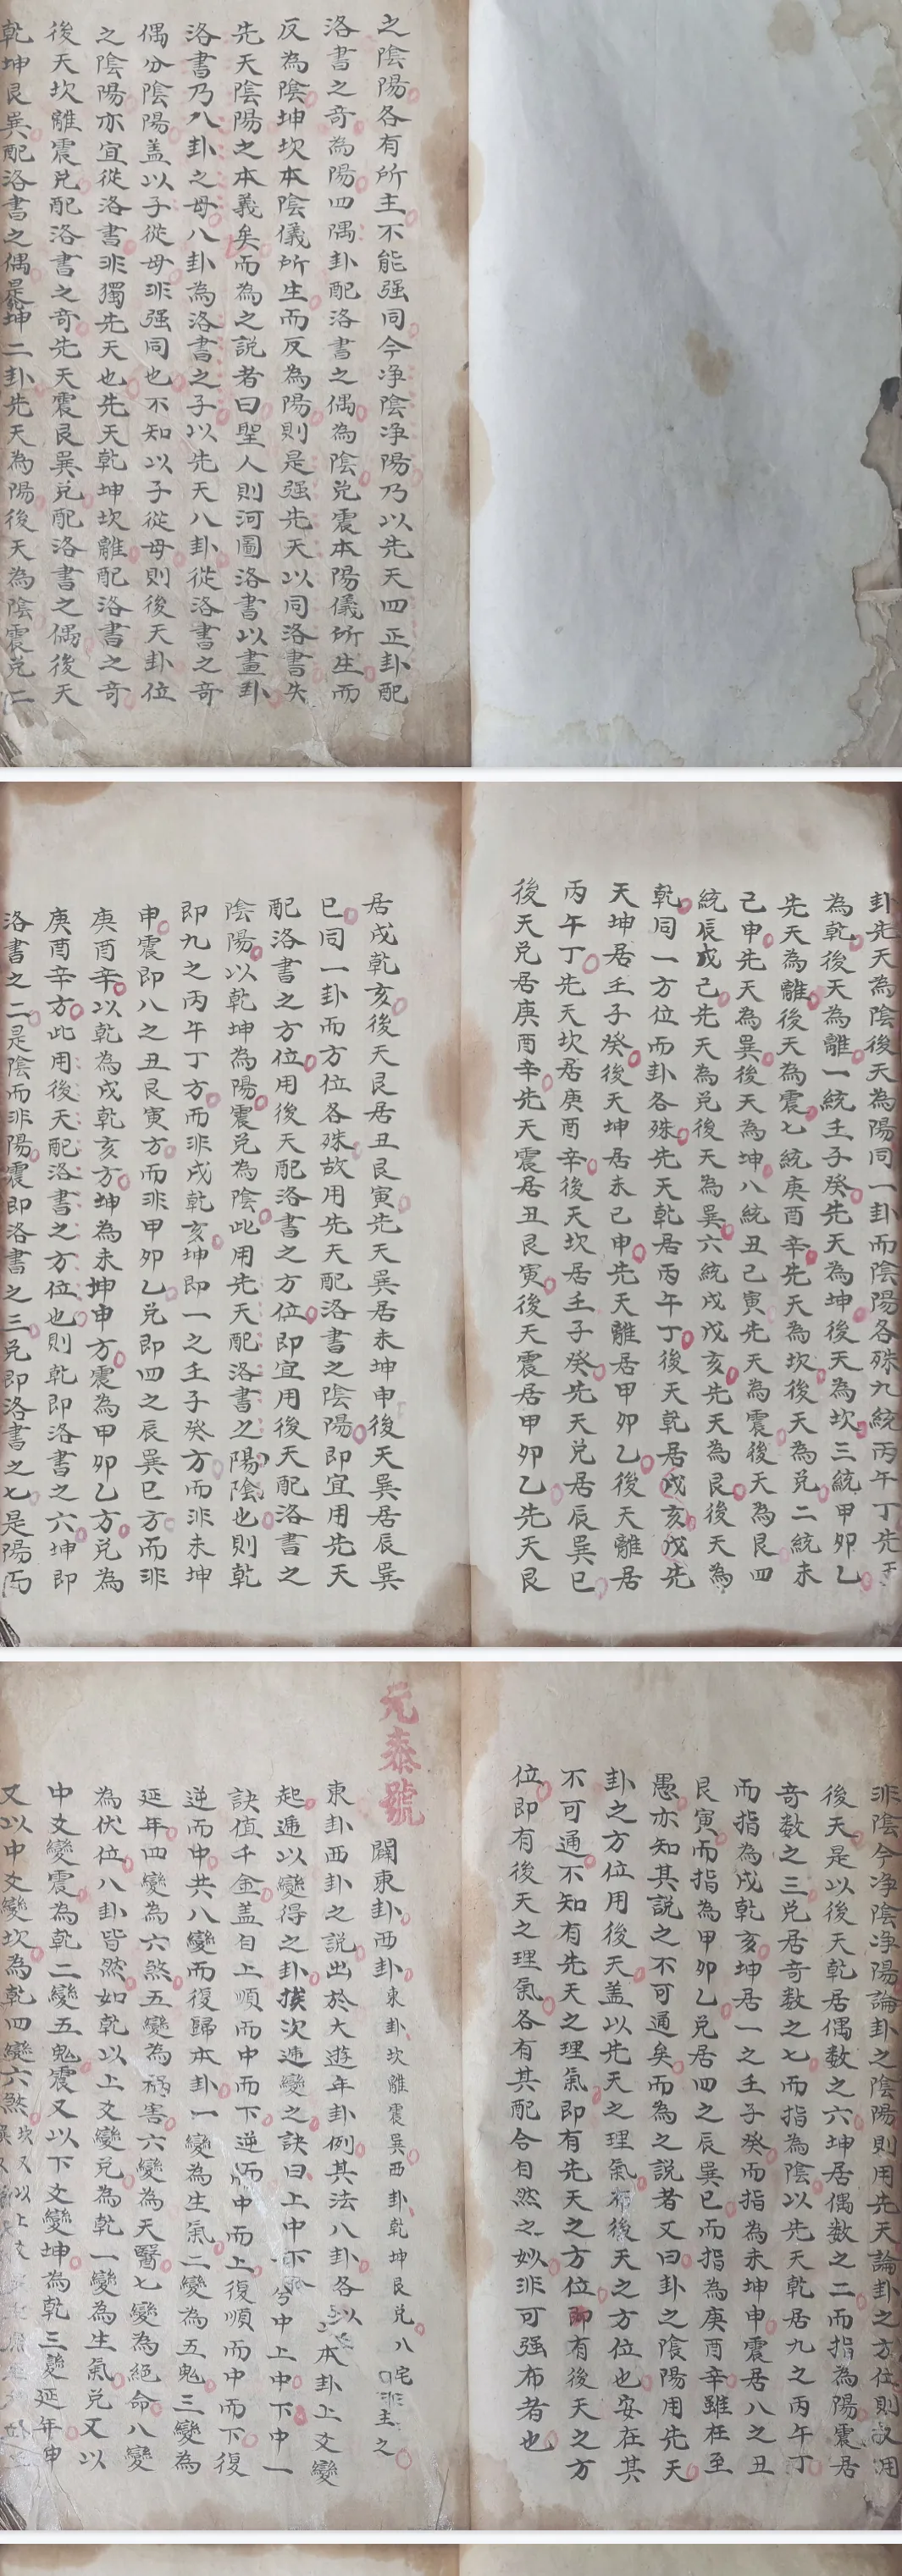 之陰陽各有所主不能强同今净陰净陽乃以先天四正卦配
洛書之奇為陽四隅卦配洛書之偶為陰兌震本陽儀所生而
反為陰坤坎本陰儀所生而反為陽則是强先天以同洛書失
先天陰陽之本義矣而為之説者曰聖人則河圖洛書以畫卦
洛書乃八卦之母八卦為洛書之子以先天八卦從洛書之奇
偶分陰陽盖以子從母非强同也不知以子從母則後天卦位
之陰陽亦宜從洛書非獨先天也先天乾坤坎離配洛書之奇
後天坎離震兌配洛書之奇先天震艮巽兌配洛書之偶後天
乾坤艮巽配洛書之偶是乾坤二卦先天為陽後天為陰震兌二
卦先天為陰後天為陽同一卦而陰陽各殊九統丙午丁先天
為乾後天為離一統壬子癸先天為坤後天為坎三統甲卯乙
先天為離後天為震七統庚酉辛先天為坎後天為兌二統未
己申先天為巽後天為坤八統丑己寅先天為震後天為艮四
統辰戊己先天為兌後天為巽六統戌戊亥先天為艮後天為
乾同一方位而卦各殊先天乾居丙午丁後天乾居戌亥戊先
天坤居壬子癸後天坤居未己申先天離居甲卯乙後天離居
丙午丁先天坎居庚酉辛後天坎居壬子癸先天兌居辰巽巳
後天兌居庚酉辛先天震居丑艮寅後天震居甲卯乙先天艮
居戌乾亥後天艮居丑艮寅先天巽居未坤申後天巽居辰巽
巳同一卦而方位各殊故用先天配洛書之陰陽即宜用先天
配洛書之方位用後天配洛書之方位即宜用後天配洛書之
陰陽以乾坤為陽震兌為陰此用先天配洛書之陽陰也則乾
即九之丙午丁方而非戌乾亥坤即一之壬子癸方而非未坤
申震即八之丑艮寅方而非甲卯乙兌即四之辰巽巳方而非
庚酉辛以乾為戌乾亥方坤為未坤申方震為甲卯乙方兌為
庚酉辛方此用後天配洛書之方位也則乾即洛書之六坤即
洛書之二是陰而非陽震即洛書之三兌即洛書之七是陽而
非陰今净陰净陽論卦之陰陽則用先天論卦之方位則又用
後天是以後天乾居偶数之六坤居偶数之二而指為陽震居
奇数之三兌居奇数之七而指為陰以先天乾居九之丙午丁
而指為戌乾亥坤居一之壬子癸而指為未坤申震居八之丑
艮寅而指為甲卯乙兌居四之辰巽巳而指為庚酉辛雖在至
愚亦知其説之不可通矣而為之説者又曰卦之陰陽用先天
卦之方位用後天盖以先天之理氣布後天之方位也安在其
不可通不知有先天之理氣即有先天之方位即有後天之方
位即有後天之理氣各有其配合自然之妙非可强布者也
元泰號
闢東卦西卦東卦坎離震巽西卦乾坤艮兌八宅非主之
東卦西卦之説出於大遊年卦例其法八卦各以本卦上爻變
起逓以變得之卦挨次逓變之訣曰上中下兮中上中下中一
訣值千金盖自上順而中而下逆而中而上復順而中而下復
逆而中共八變而復歸本卦一變為生氣二變為五鬼三變為
延年四變為六煞五變為禍害六變為天醫七變為絕命八變
為伏位八卦皆然如乾以上爻變兌為乾一變為生氣兌又以
中爻變震為乾二變五鬼震又以下爻變坤為乾三變延年坤
又以中爻變坎為乾四變六煞坎又以上爻